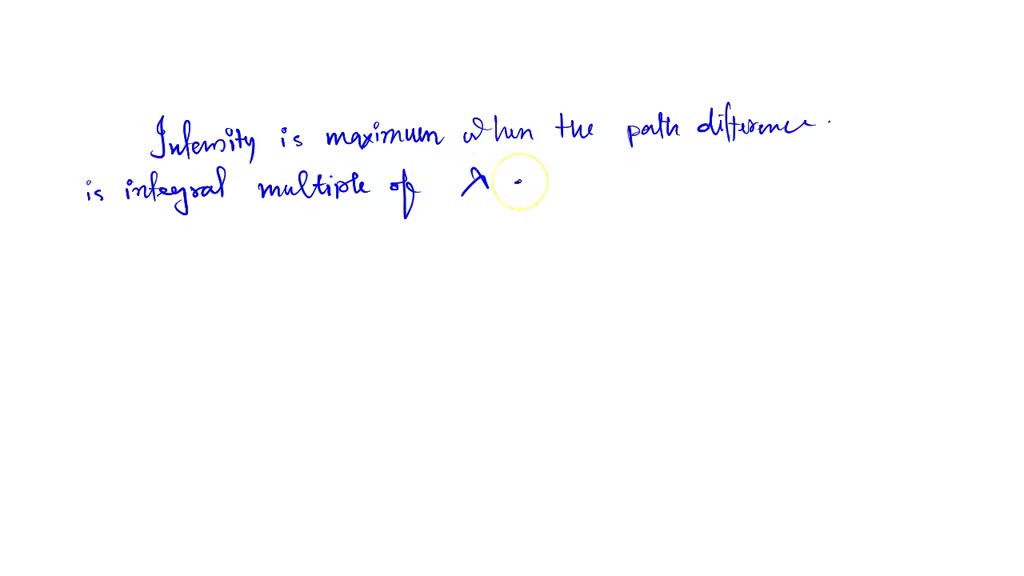 Intensity is maximum when the path difference.
is integral multiple of λ .